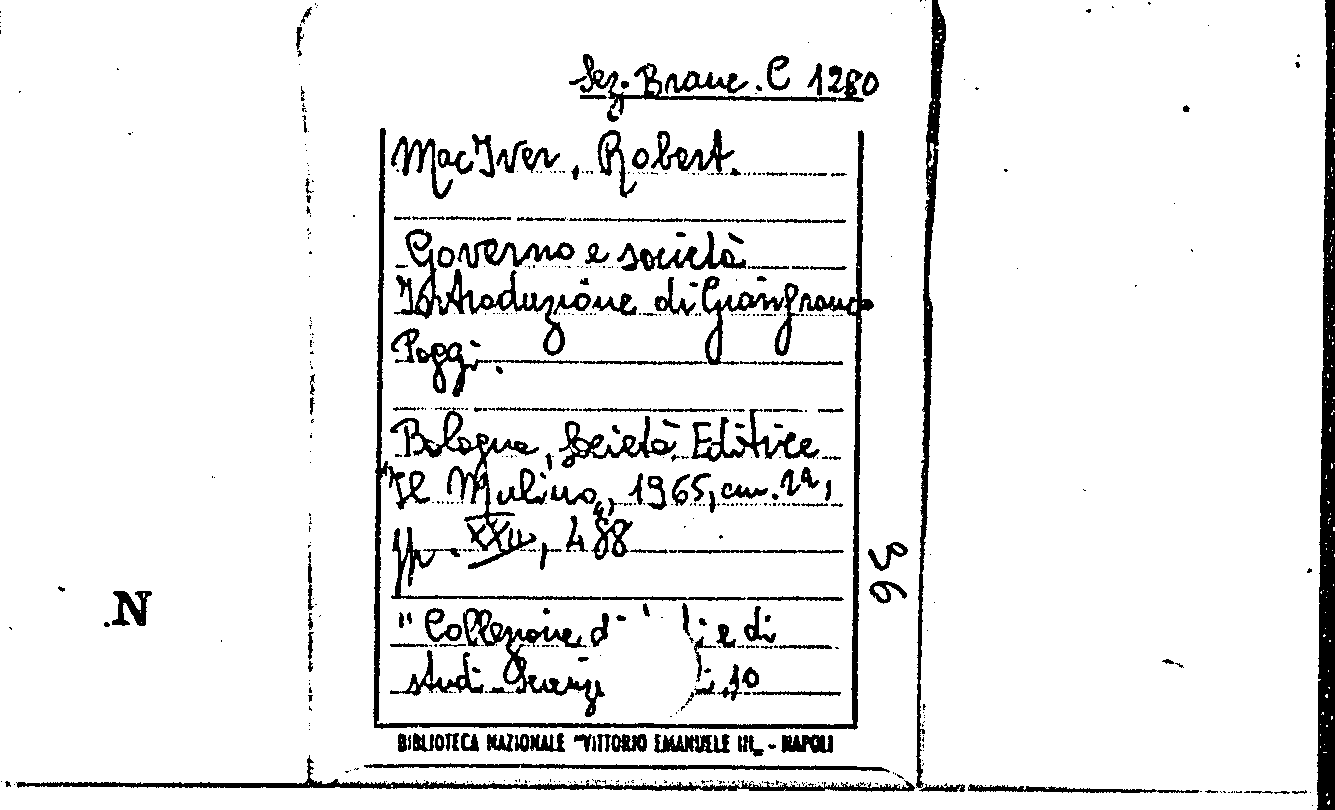 Sez. Branc. C 1280
MacIver, Robert.
Governo e società
Introduzione di Gianfranco
Poggi.
Bologna, Società Editrice
"Il Mulino", 1965, cm. 21,
pp. XXII, 488
36
"Collezione di e di
studi 10
N
BIBLIOTECA NAZIONALE "VITTORIO EMANUELE III„ - NAPOLI